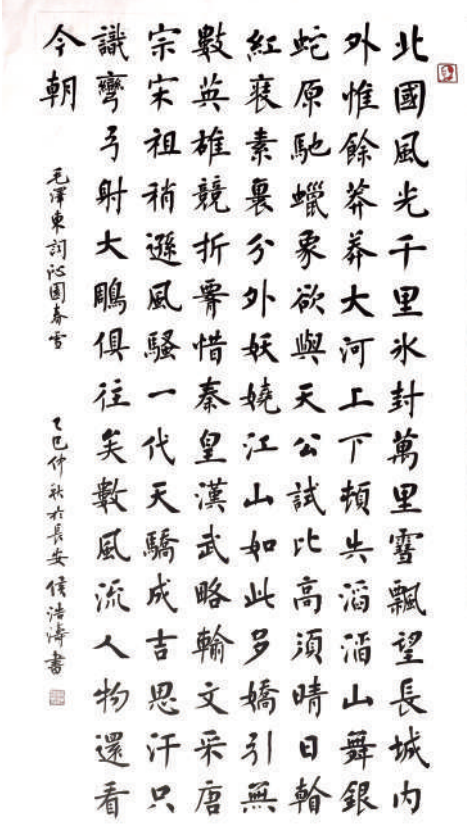 北國風光千里氷封萬里雪飄望長城内
外惟餘莽莽大河上下頓失滔滔山舞銀
蛇原馳蠟象欲與天公試比高須晴日
紅裝素裹分外妖嬈江山如此多嬌引無
數英雄競折惜秦皇漢武略輸文采唐
宗宋祖稍遜風騷一代天驕成吉思汗只
識彎弓射大鵰俱往矣數風流人物還看
今朝
毛澤東詞沁園春雪
乙巳仲秋於長安侯浩濤書